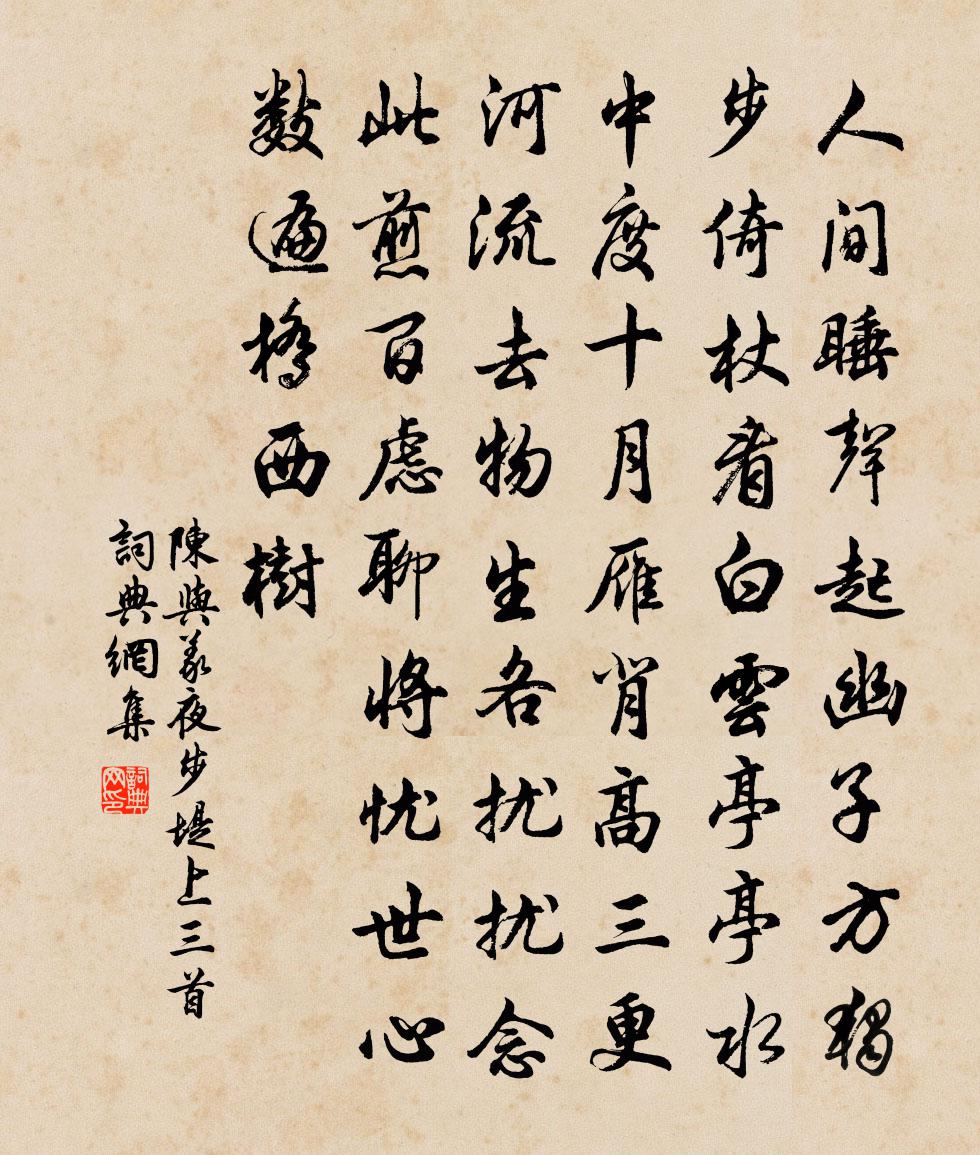 人間睡聲起幽子方獨
步倚杖看白雲亭亭水
中度十月雁背高三更
河流去物生各扰扰念
此煎百慮聊將忧世心
數遍橋西樹
陳與義夜步堤上三首
詞典網集
詞典网印